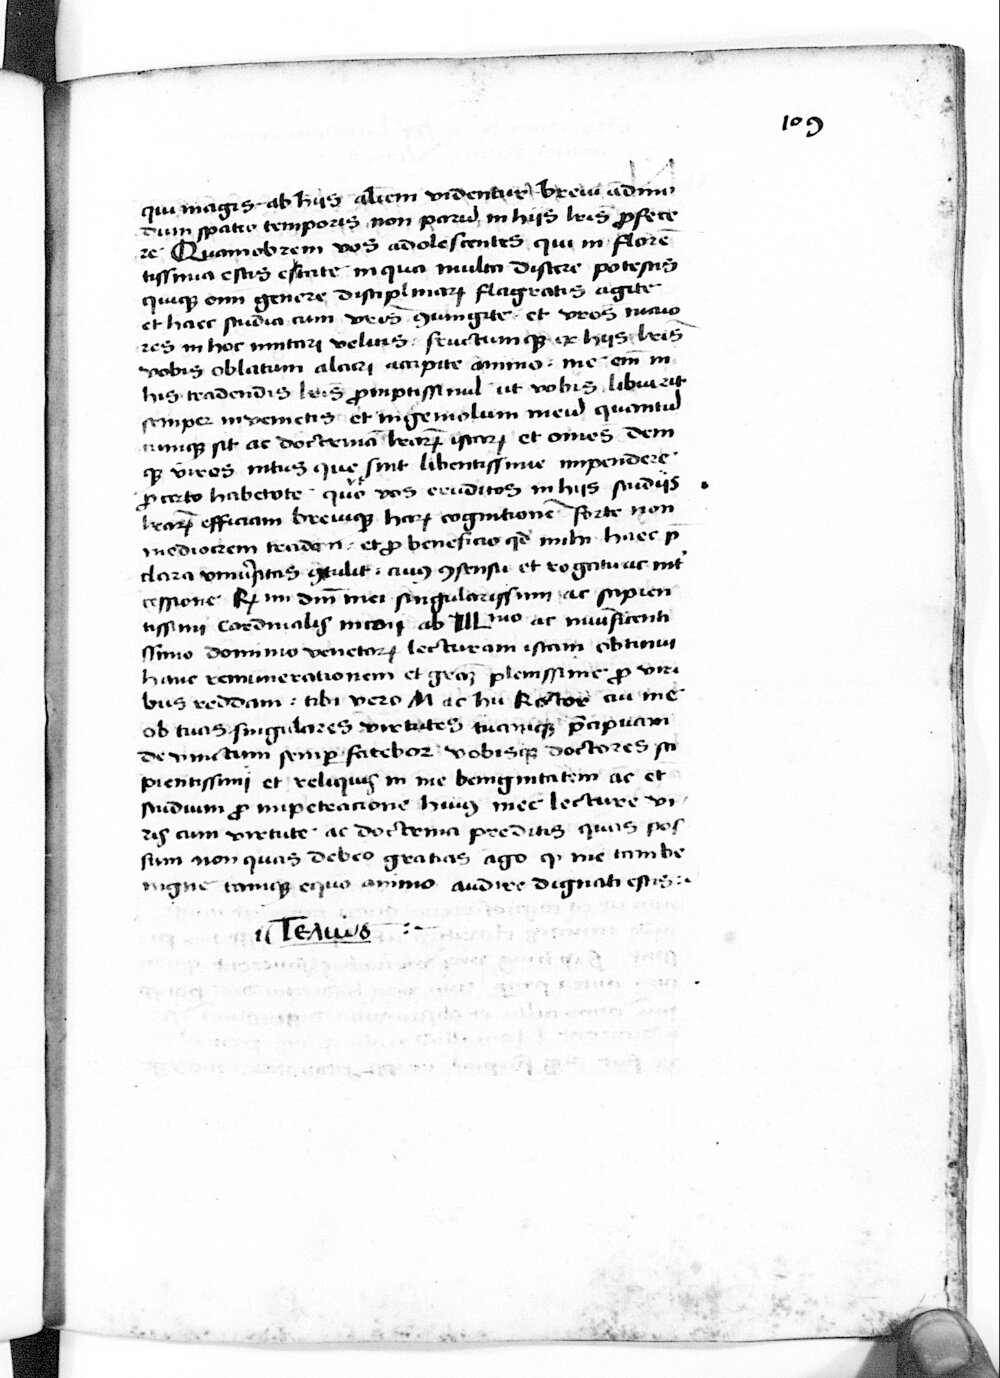 109
qui magis ab hijs alieni videntur brevi admo
dum spatio temporis non parū in hijs lr̄is ꝓfece
re Quamobrem vos adolescentes qui in florē
tissima estis estate in qua multa discere potestis
quiqꝫ om̄i genere disciplinaꝝ flagratis agite
et haec studia cum vr̄is ꝯiungite et vr̄os maio
res in hoc imitari velitis fructumqꝫ ex hijs lr̄is
vobis oblatum alacri accipite animo me em̄ in
his tradendis lr̄is ꝓmptissimū ut vobis libuerit
semper invenietis et ingeniolum meū quantū
cumqꝫ sit ac doctrinā lr̄aꝝ istaꝝ et om̄es deni
qꝫ vires intus que sint libentissime impendere
ꝓcerto habetote quō vos eruditos in hijs studijs
lr̄aꝝ efficiam breviqꝫ haꝝ cognitionē forte non
mediocrem tradam et ꝓ beneficio qd̄ mihi haec p̄
clara univ̄sitas ꝯtulit cuiꝯ ꝯsensu et rogatu ac int̓
cessione R mi dm̄ mei singularissimi ac sapien
tissimi Cardinalis ab Ill mo ac munificenti
ssimo dominio venetoꝝ lecturam istam obtinui
hanc remunerationem et gr̄aꝫ plenissime ꝓ viri
bus reddam tibi vero M ac hu Rector cui me
ob tuas singulares virtutes p̄cipuam
devinctum semꝑ fatebor vobisqꝫ doctores sa
pientissimi et reliquis in me benignitatem ac et
studium ꝓ impetracione huiꝯ mee lecture vi
ris cum virtute ac doctrina preditis quas pos
sum non quas debeo gratias ago ꝙ me tam be
nigne tamqꝫ equo animo audire dignati estis
Τελως